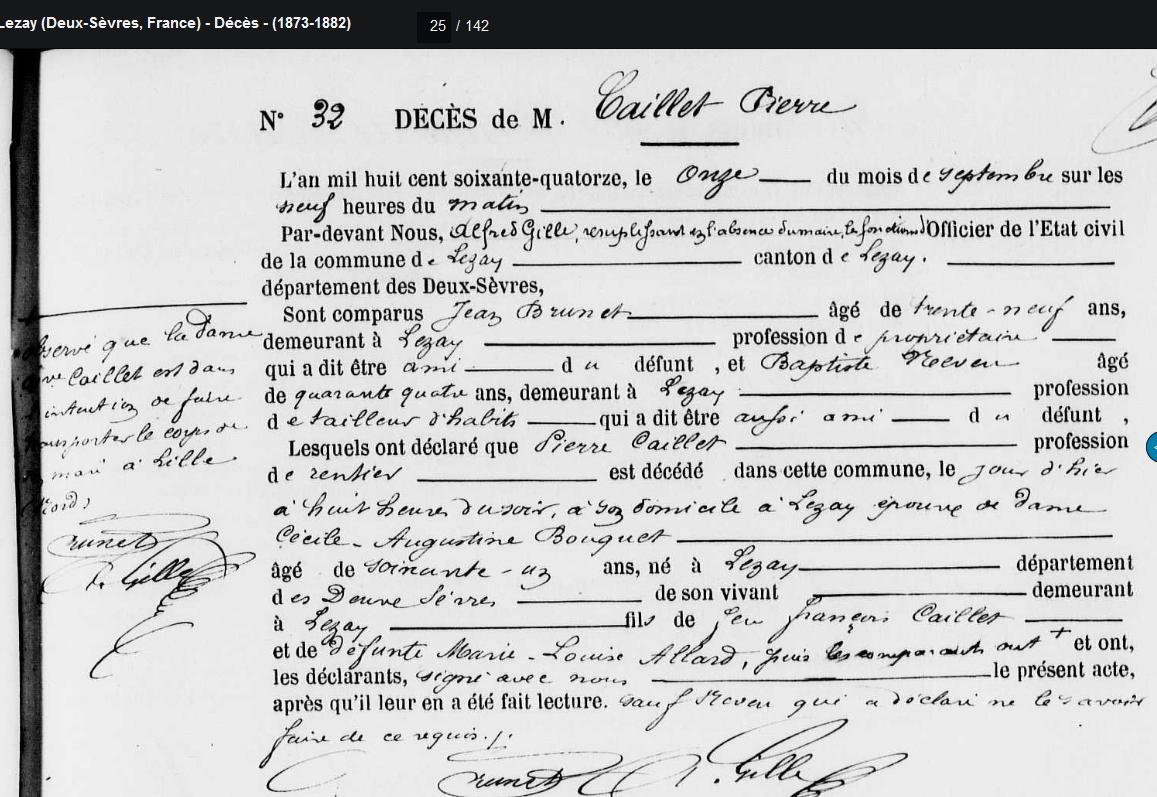 Lezay (Deux-Sèvres, France) - Décès - (1873-1882)
25 / 142
N° 32 DÉCÈS de M. Caillet Pierre
L'an mil huit cent soixante-quatorze, le onze du mois de septembre sur les
neuf heures du matin
Par-devant Nous, Alfred Gille, remplissant en l'absence du maire, les fonctions d'Officier de l'Etat civil
de la commune de Lezay canton de Lezay.
département des Deux-Sèvres,
Sont comparus Jean Brunet âgé de trente-neuf ans,
demeurant à Lezay profession de propriétaire
qui a dit être ami du défunt, et Baptiste âgé
de quarante quatre ans, demeurant à Lezay profession
de tailleur d'habits qui a dit être aussi ami du défunt,
Lesquels ont déclaré que Pierre Caillet profession
de rentier est décédé dans cette commune, le jour d'hier
à huit heures du soir, à son domicile à Lezay époux de dame
Cécile-Augustine Bouquet
âgé de soixante-un ans, né à Lezay département
des Deux Sèvres de son vivant demeurant
à Lezay fils de feu françois Caillet
et de défunte Marie-Louise Allard, puis les comparants ont + et ont,
les déclarants, signé avec nous le présent acte,
après qu'il leur en a été fait lecture. sauf qui a déclaré ne le savoir
faire de ce requis./.
Brunet A. Gille
observé que la Dame
Caillet est dans
l'intention de faire
transporter le corps de
mari à Lille
(Nord)
Brunet
A. Gille